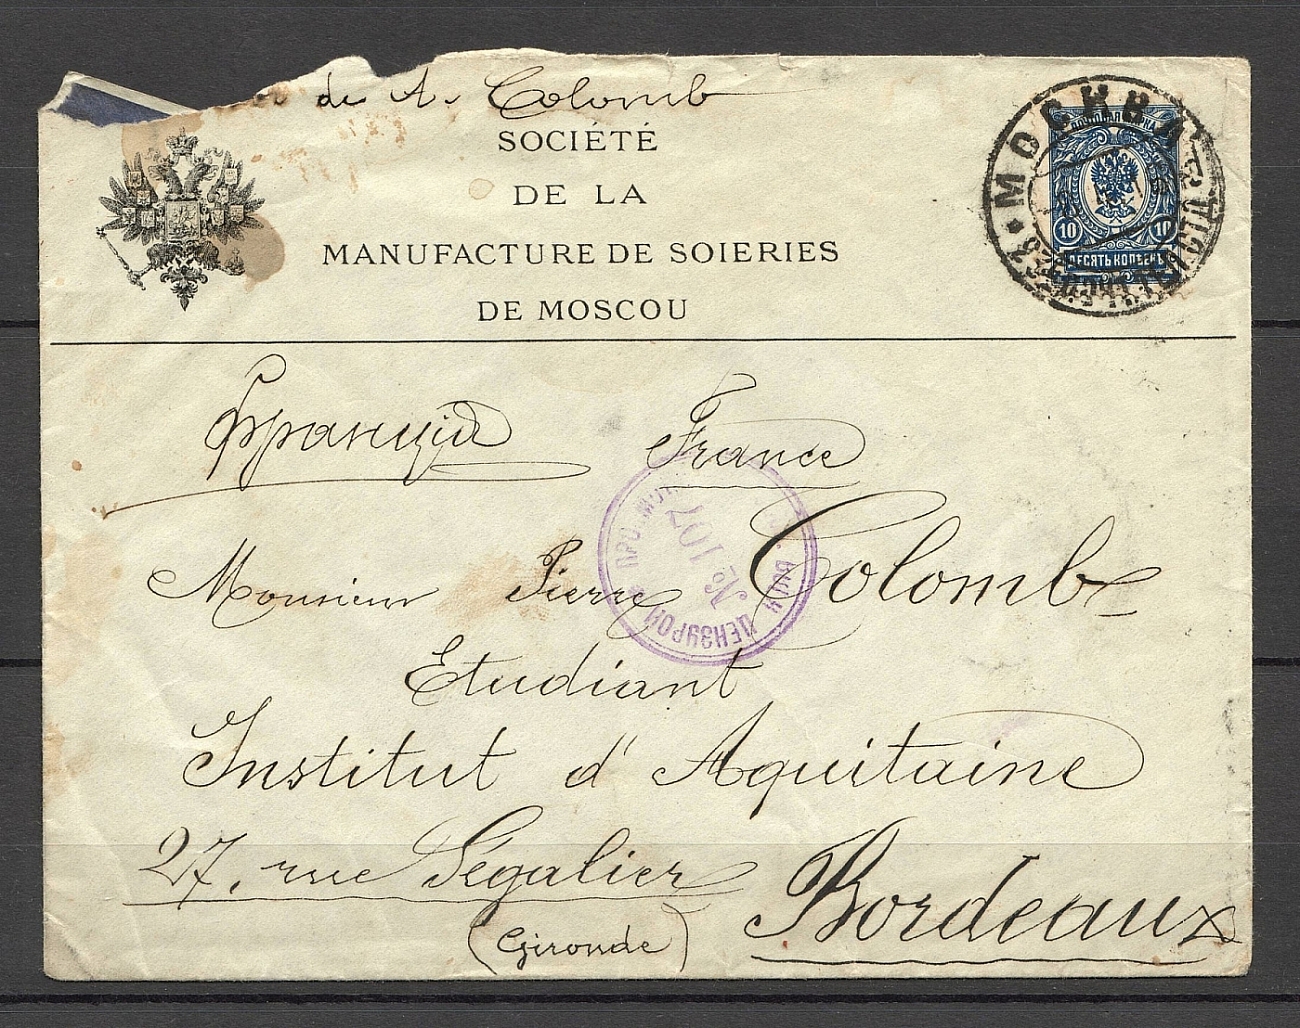 de A. Colomb
SOCIÉTÉ
DE LA
MANUFACTURE DE SOIERIES
DE MOSCOU
МОСКВА
10 10
ДЕСЯТЬ КОПѢЕКЪ
Франція France
№ 107
ЦЕНЗУРОЙ
Monsieur Pierre Colomb
Etudiant
Institut d'Aquitaine
27, rue Ségalier
Bordeaux
(Gironde)